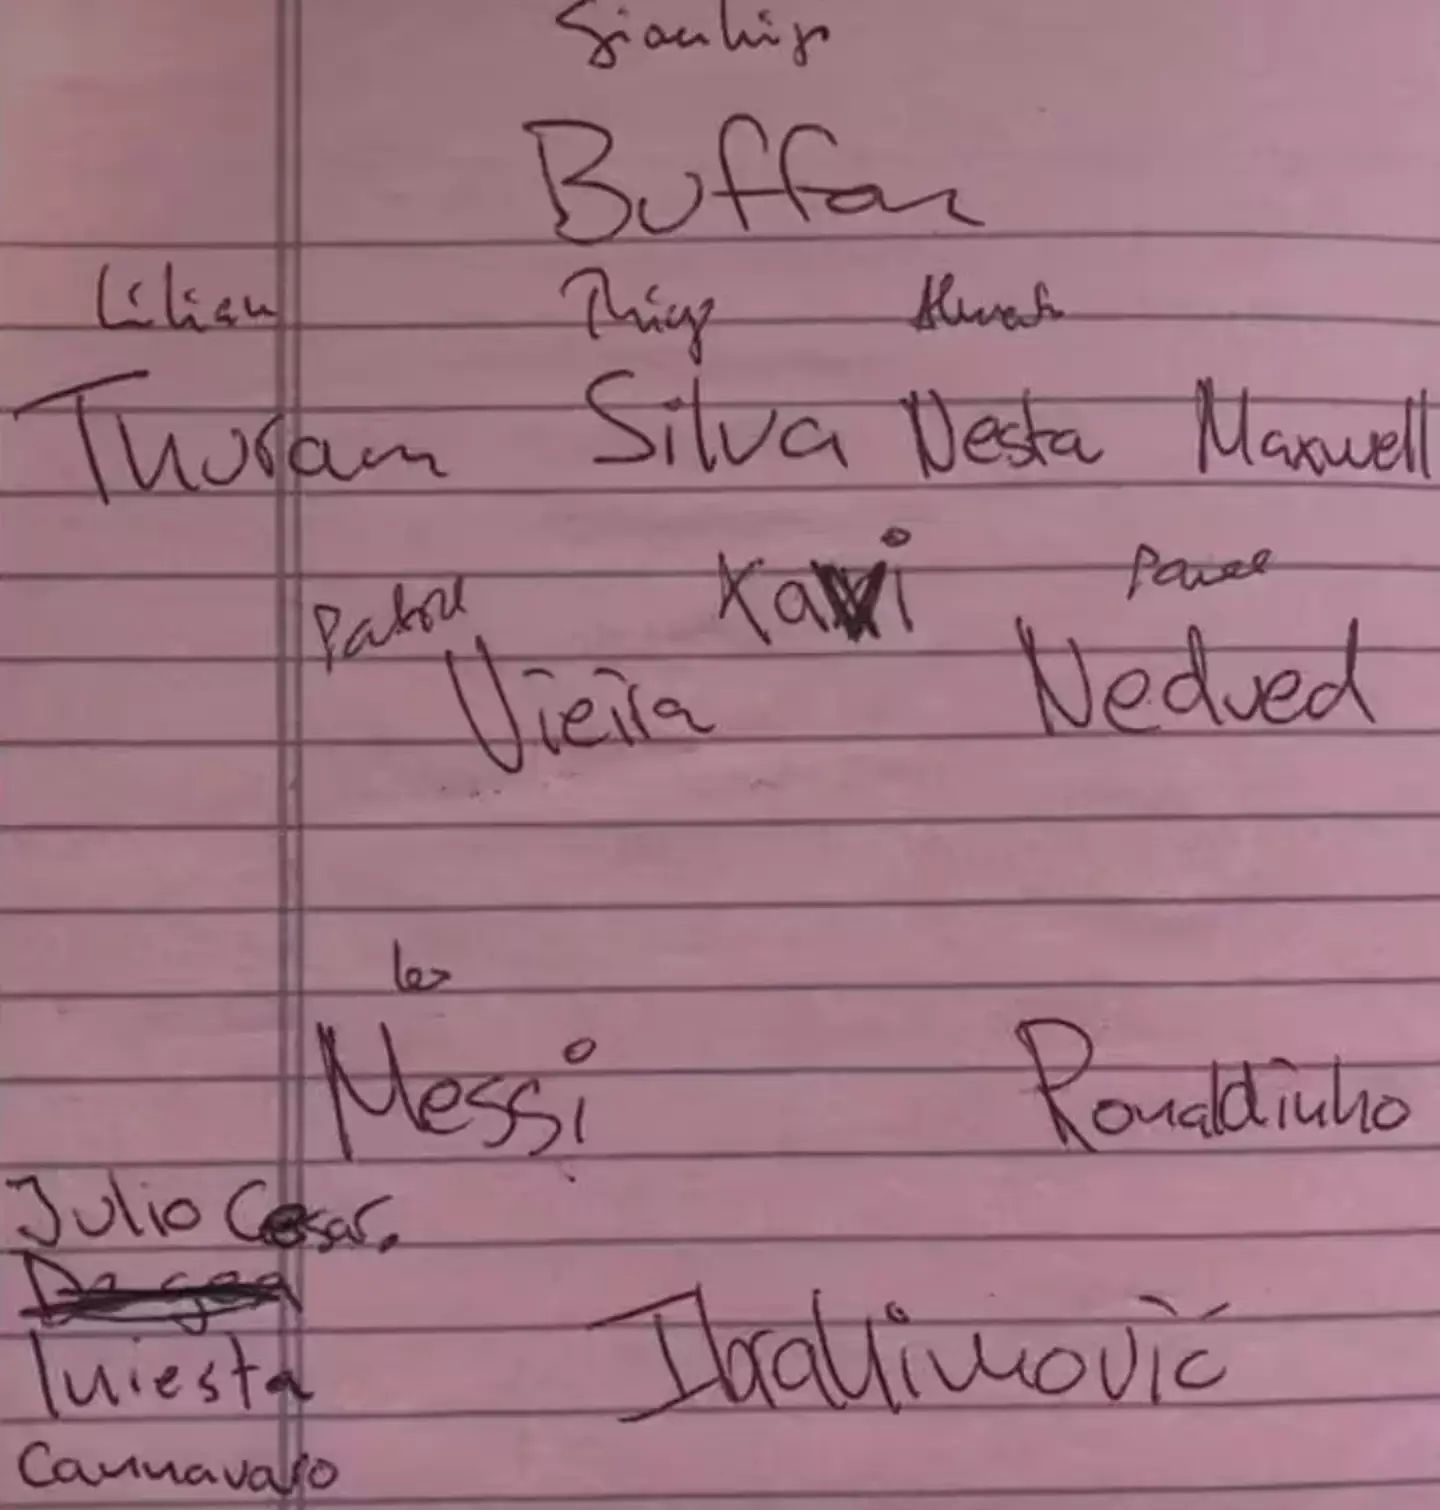 Gianluigi
Buffon
Lilian Thiago
Thuram Silva Nesta Maxwell
Xavi
Patrick Pavel
Vieira Nedved
Leo
Messi Ronaldinho
Julio Cesar.
Iniesta Ibrahimović
Cannavaro